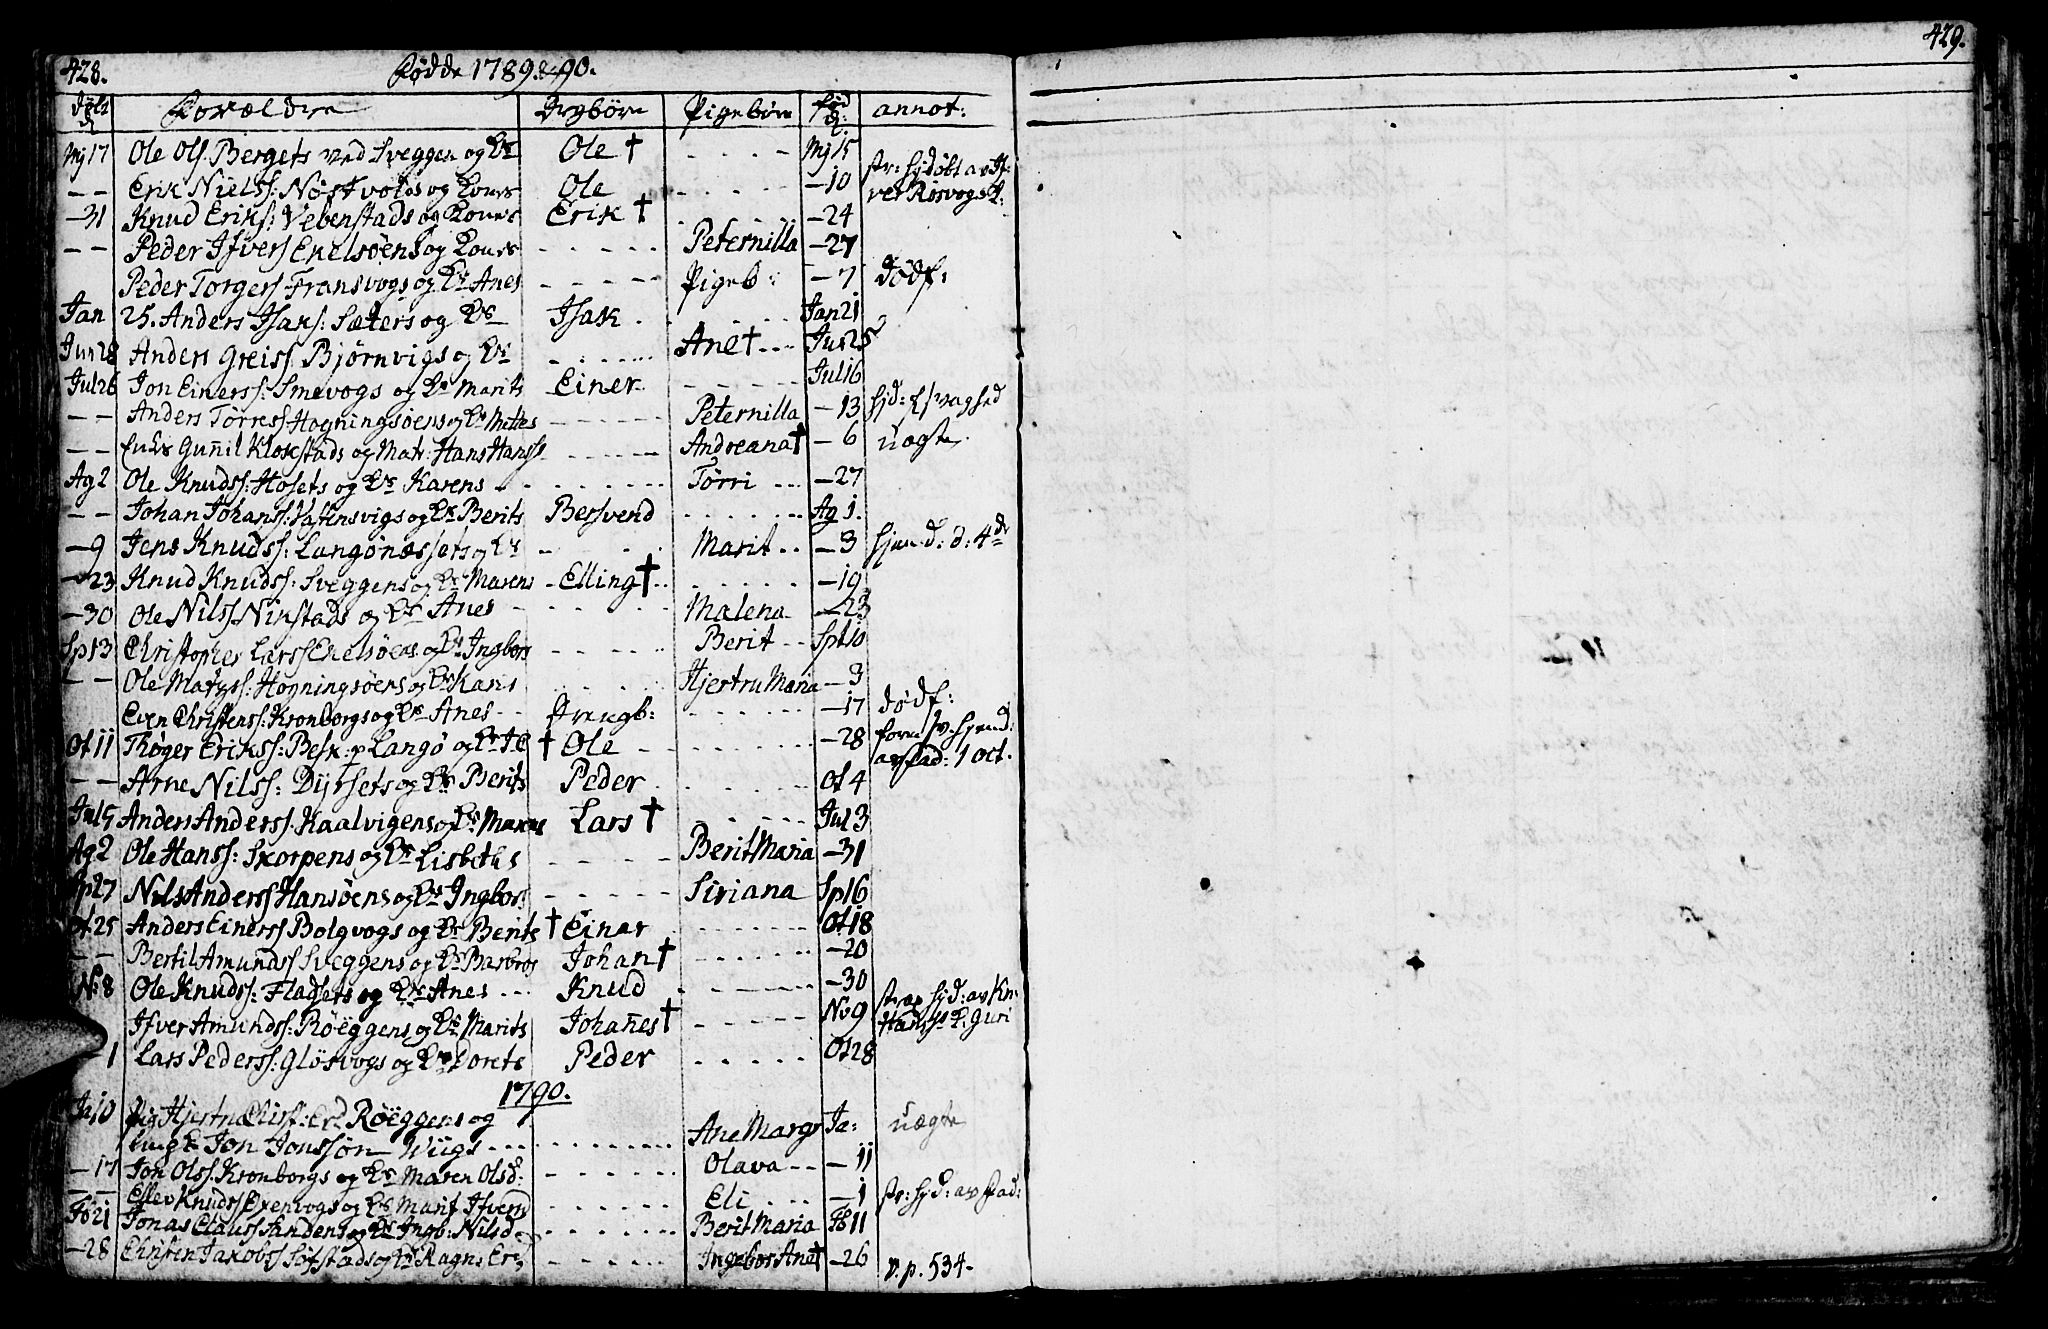 428. Fødde 1789 & 90. 429.
døbt d Forældre Drgbörn Pigebörn fød d: annot:
Mj 17 Ole Ols. Bergets ved Sveggen og Qv Ole † - - - - Mj 15
- - Erik Niels: Nøstvolds og Konens Ole - - - - - 10 str: hjdøbt av If-
- 31 Knud Eriks: Vebenstads og Konens Erik † - 24 ver Røsvogs
- - Peder Ifvers Enelsöens og Konens - - - - Peternilla - 27
Peder Torgers Fransvogs og Qv Anes - - - - Pigeb: - 7 Dödf:
Jan 25. Anders Isaks: Sæters og Qv Isak Jan 21
Jun 28 Anders Greiss. Bjørnvigs og Qv - - - - Ane † - - - Jun 25
Jul 26 Jon Einerss: Smevogs og Qv Marits Einer - - - - Jul 16
- - Anders Tørress Hogningsöens og Qv Mettes - - - - Peternilla - 13 hjd: svaghed
- - Gunil Klokstads og Matr: Hans Hanss - - - - Andreana † - 6 uægte.
Ag 2 Ole Knudss: Hosets og Qv Karens - - - - Tørri - - - - 27
- - Johan Johanss: Vastensvigs og Qv Berits Bersvend - - - - Ag 1.
- 9 Jens Knudss: Langönæssets og Qv - - - - Marit - - - 3 hjemd: d: 4de
- 23 Knud Knudss: Sveggens og Qv Marens - Elling † - - - - - 19
- 30 Ole Nilss Ninstads og Qv Anes - - - - Malena - 23
Sp 13 Christopher Larss Enelsöens og Qv Ingbors - - - - Berit - - Spt 10
- - Ole Matyss: Hogningsöens og Qv Karis - - - - Hjertru Maria - 3
Even Christenss: Kronborgs og Qv Anes - - Drengb: - - - - - 17 dödf:
Ot 11 Thøger Erikss: Besk: p Langö og Qv † Ole - - - - - 28 hjemd:
- - Arne Nilss: Dyrsets og Qv Berits Peder - - - - Ot 4 av fad: 1 oct.
Jul 5 Anders Anderss. Kaalvigens og Qv Marens Lars † - - - - Jul 3
Ag 2 Ole Hanss: Skorpens og Qv Lisbeths - - - - Berit Maria - 31
Sp 27 Nils Anderss Hansöens og Qv Ingbor: - - - - Siriana Sp 16
Ot 25 Anders Einerss Bolgvogs og Qv Berits † Einar - - - - Ot 18
- - Bertil Amundss Sveggens og Qv Barbros Johan † - - - - - 20
Nv 8 Ole Knudss: Fladsets og Qv Anes - - - Knud - - - - - 30
Ifver Amundss: Röeggens og Qv Marits Johañes † - - - - Nv 9 hjd: av Kn:
- 1 Lars Pederss: Glösvogs og Qv Dorete Peder - - - - Ot 28 Hanss Q. Guri
1790.
Ja 10 Pig Hjertru Christ: Röeggens og
Jon Jonssön Wiigs - - - - Ane Margr Ja: uægte
- 17 Jon Olss. Kronborgs og Qv Maren Olsd: - - - - Olava - - - 11
- - Ellev Knudss Exenvogs og Qv Marit Ifversd - - - - Eli - - - - 1 str: hjd: av fad:
Fb 21 Jonas Clauss Sandens og Qv Ingb: Nilsd. - - - - Berit Maria Fb 11
- 28 Christen Jakobs Söfstads og Qv Ragn: - - - - Ingebor Ane † - 26 v. p. 534.